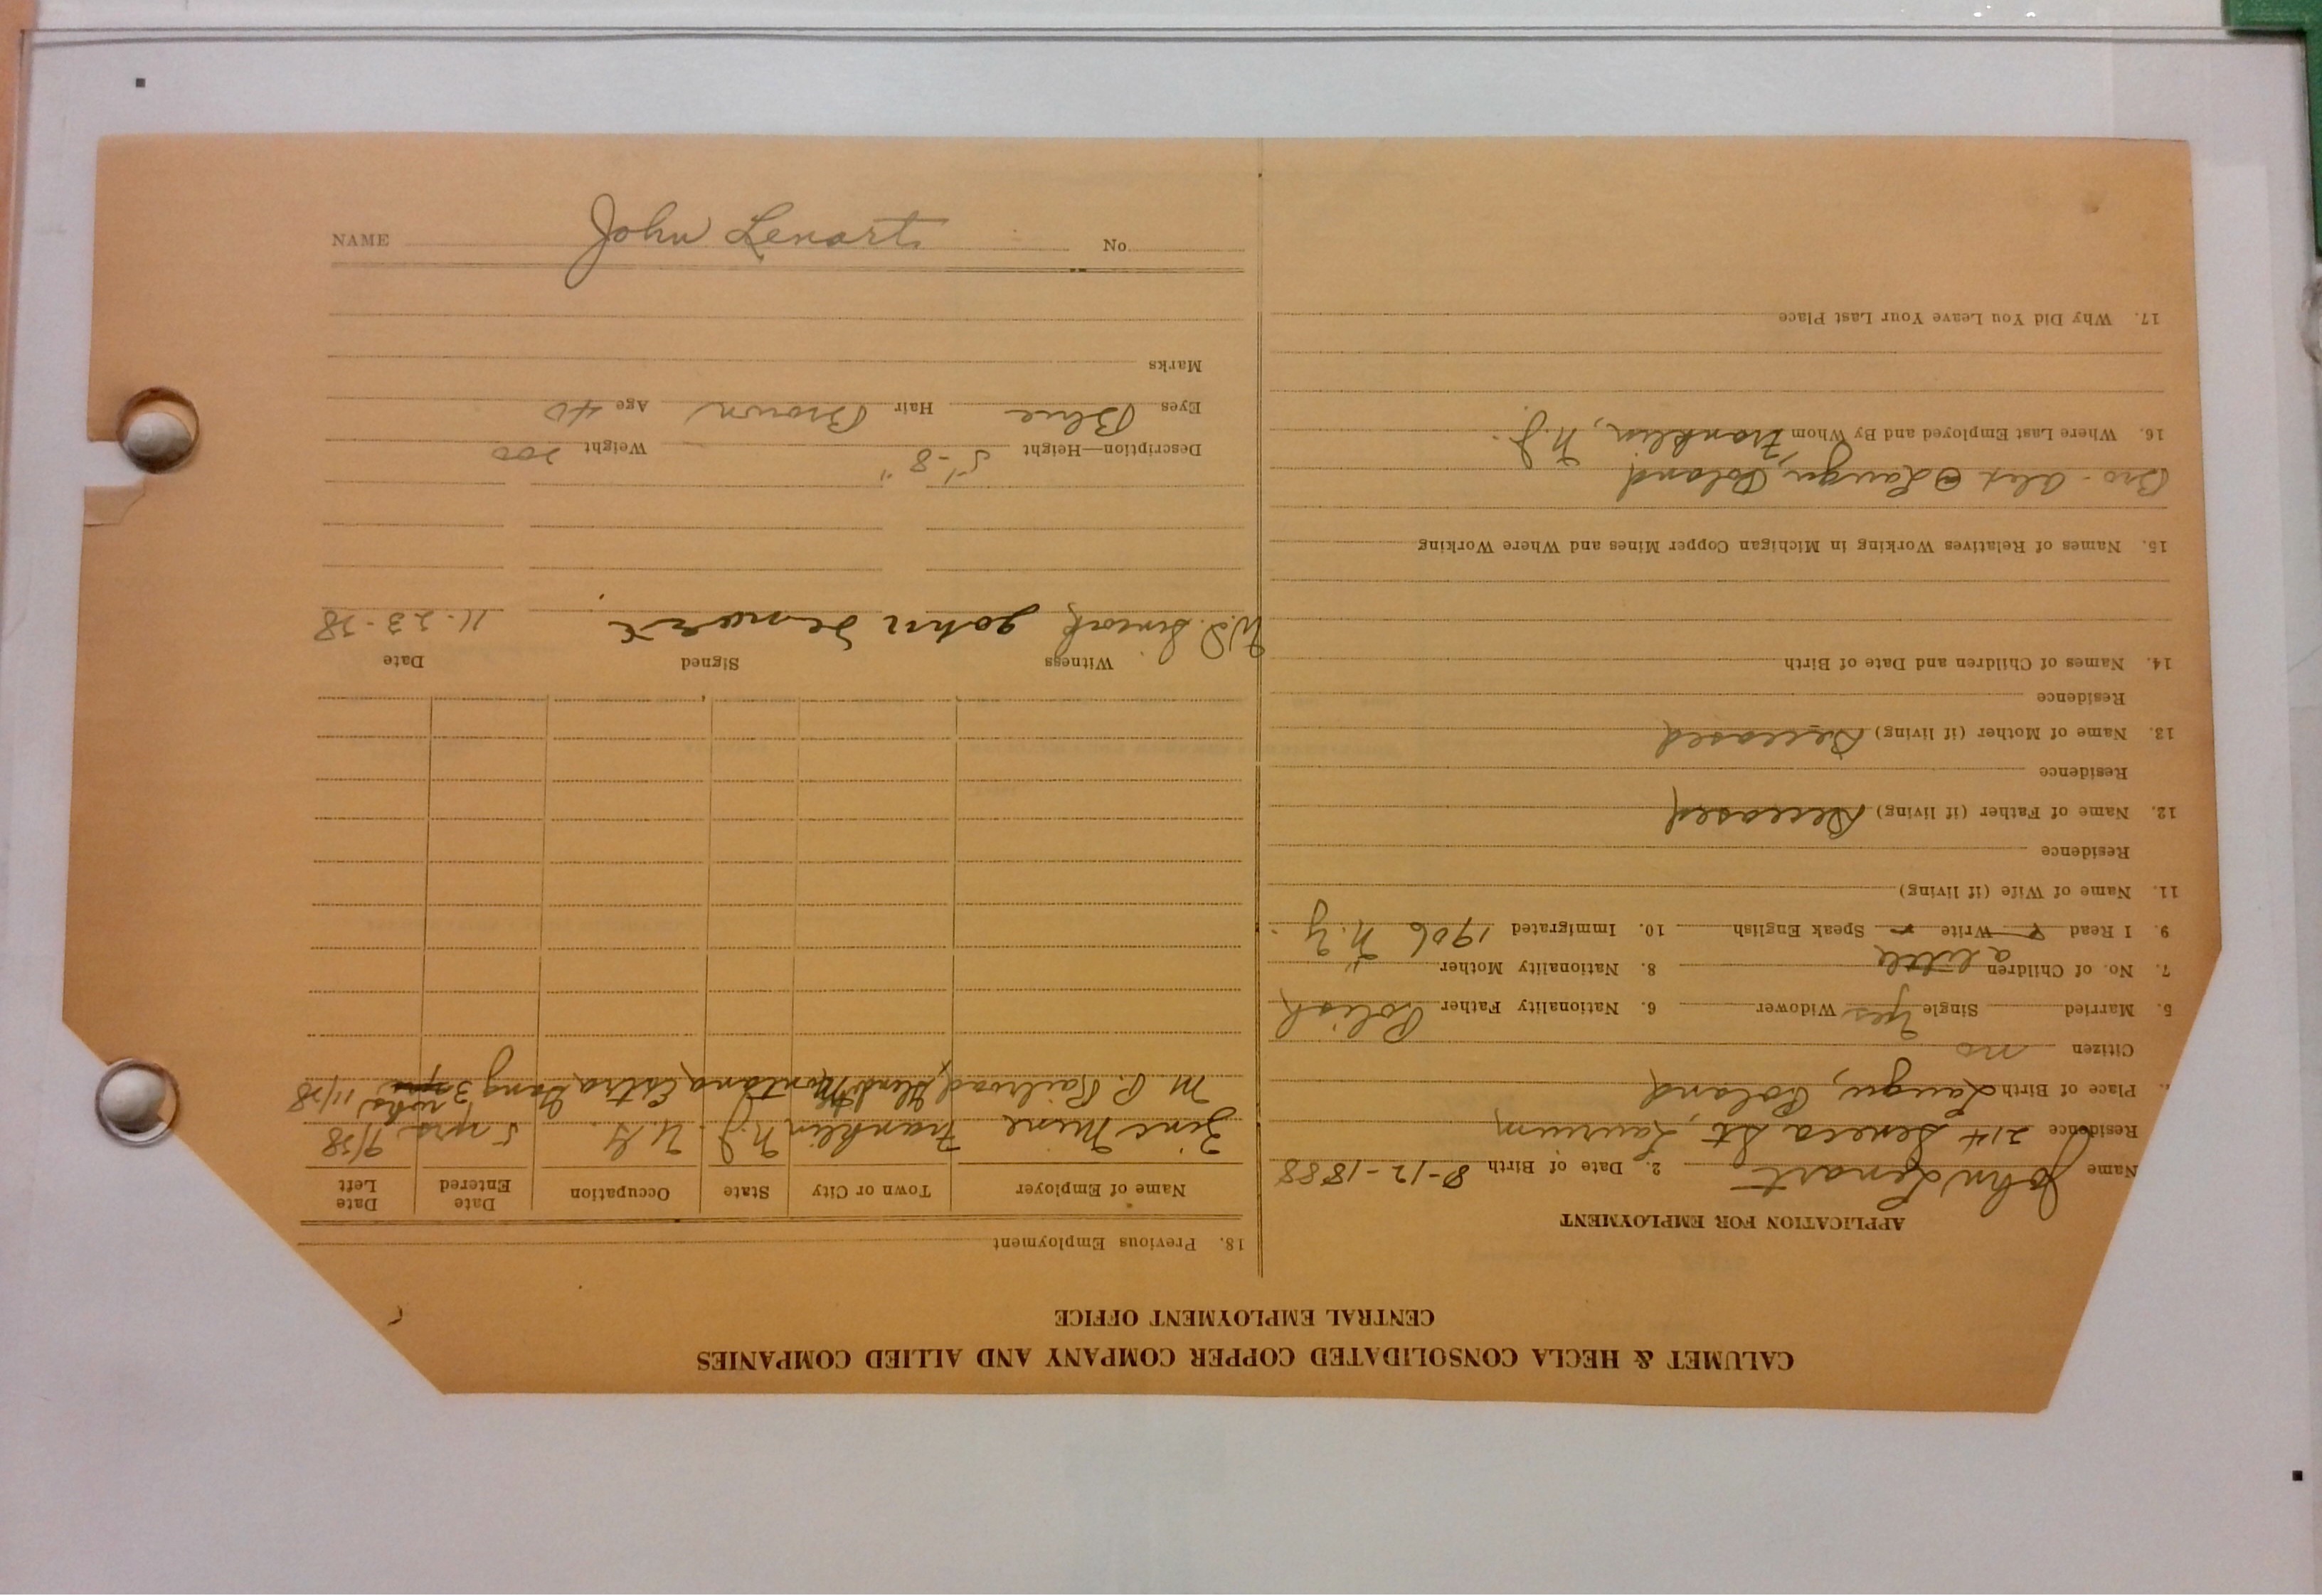 CALUMET & HECLA CONSOLIDATED COPPER COMPANY AND ALLIED COMPANIES
CENTRAL EMPLOYMENT OFFICE
APPLICATION FOR EMPLOYMENT
Name John Lenart 2. Date of Birth 8-12-1888
Residence 214 Seneca St, Laurium
Place of Birth Poland
Citizen no
5. Married Single Yes Widower 6. Nationality Father Polish
7. No. of Children 8. Nationality Mother "
a little
9. I Read Write Speak English 10. Immigrated 1906 N.Y.
11. Name of Wife (if living)
Residence
12. Name of Father (if living) Deceased
Residence
13. Name of Mother (if living) Deceased
Residence
14. Names of Children and Date of Birth
15. Names of Relatives Working in Michigan Copper Mines and Where Working
Bro - Alex Poland
16. Where Last Employed and By Whom Franklin, N.J.
17. Why Did You Leave Your Last Place
18. Previous Employment
Name of Employer Town or City State Occupation Date Entered Date Left
Zinc Mine Franklin N.J. U.G. 5 yrs 9/28
M. P. Railroad, Montana Extra Gang 3 11/28
Witness Signed Date
John Lenart 11-23-28
Description—Height 5'-8" Weight 200
Eyes Blue Hair Brown Age 40
Marks
NAME John Lenart No.